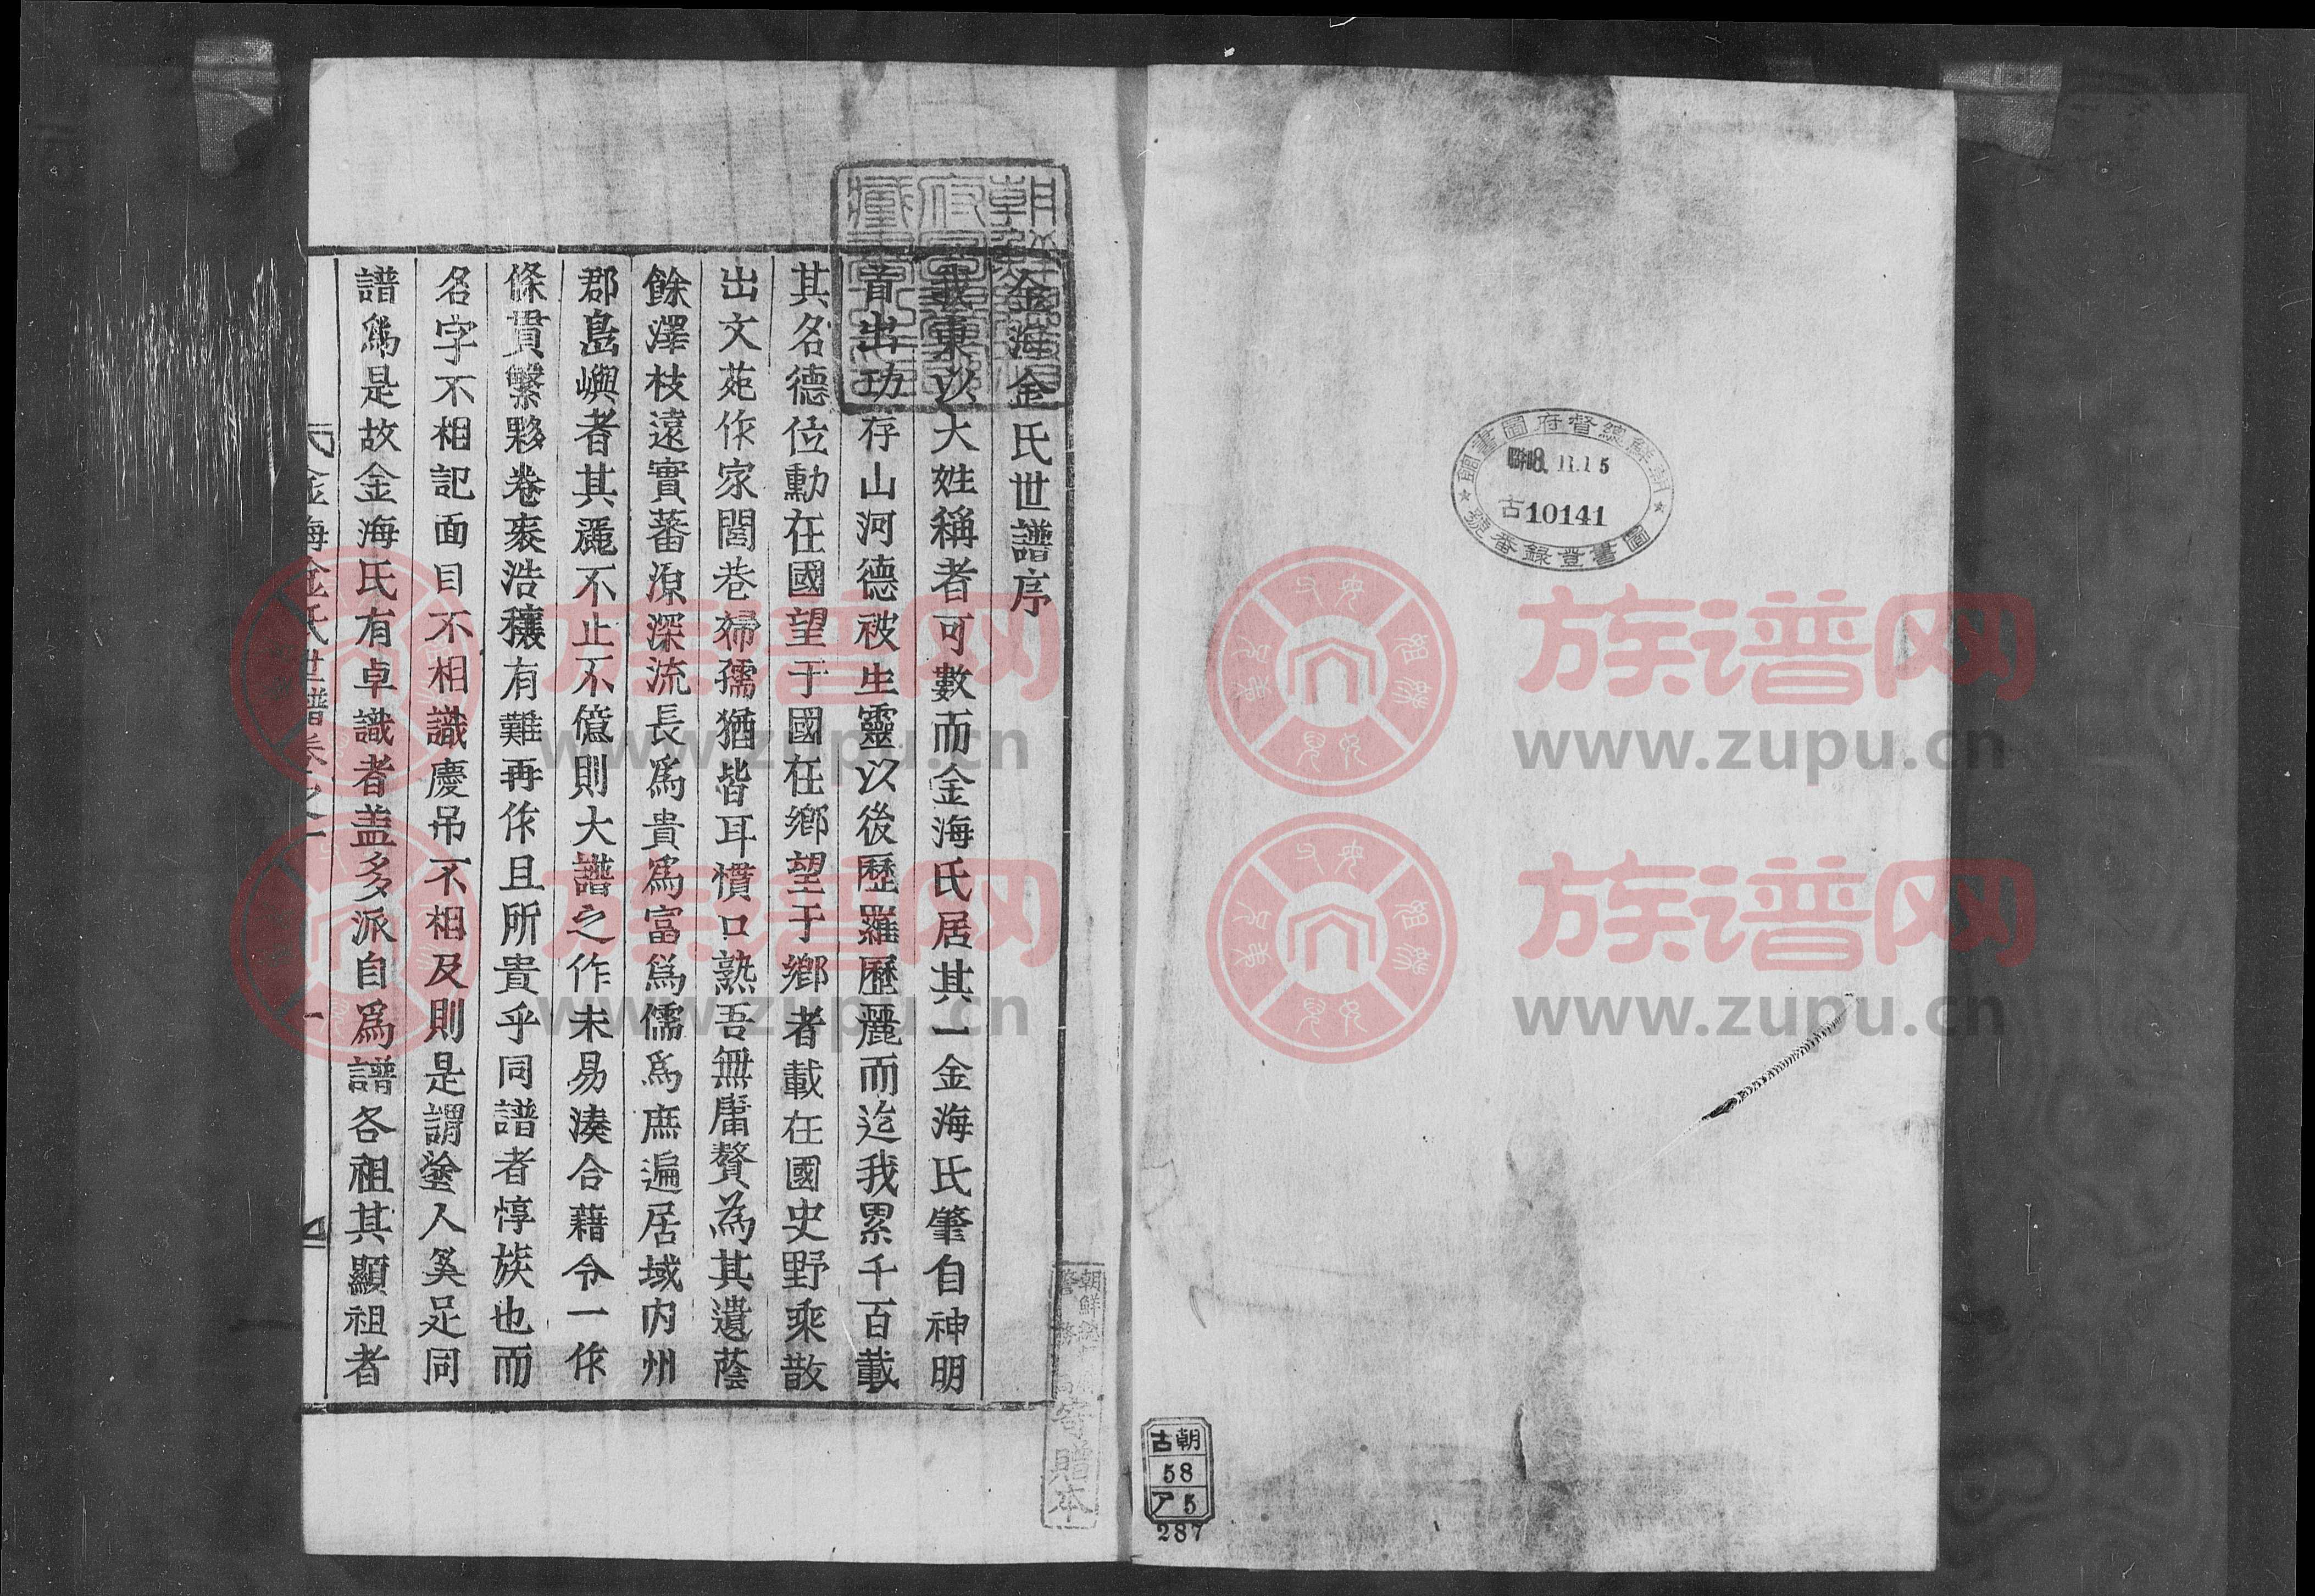 朝鮮總督府圖書館
昭8.11.15
古10141
圖書登錄番號
族谱网
www.zupu.cn
族谱网
www.zupu.cn
古朝
58
ア5
287
寄贈本
金海金氏世譜序
我東以大姓稱者可數而金海氏居其一金海氏肇自神明
首出功存山河德被生靈以後歷羅歷麗而迄我累千百載
其名德位勳在國望于國在鄉望于鄉者載在國史野乘散
出文苑作家閭巷婦孺猶皆耳慣口熟吾無庸贅為其遺蔭
餘澤枝遠實蕃源深流長爲貴爲富爲儒爲庶遍居域內州
郡島嶼者其麗不止不億則大譜之作未易湊合藉令一作
條貫繁夥卷袠浩穰有難再作且所貴乎同譜者惇族也而
名字不相記面目不相識慶吊不相及則是謂塗人奚足同
譜爲是故金海氏有卓識者盖多派自爲譜各祖其顯祖者
金海金氏世譜卷之一
一
族谱网
www.zupu.cn
族谱网
www.zupu.cn